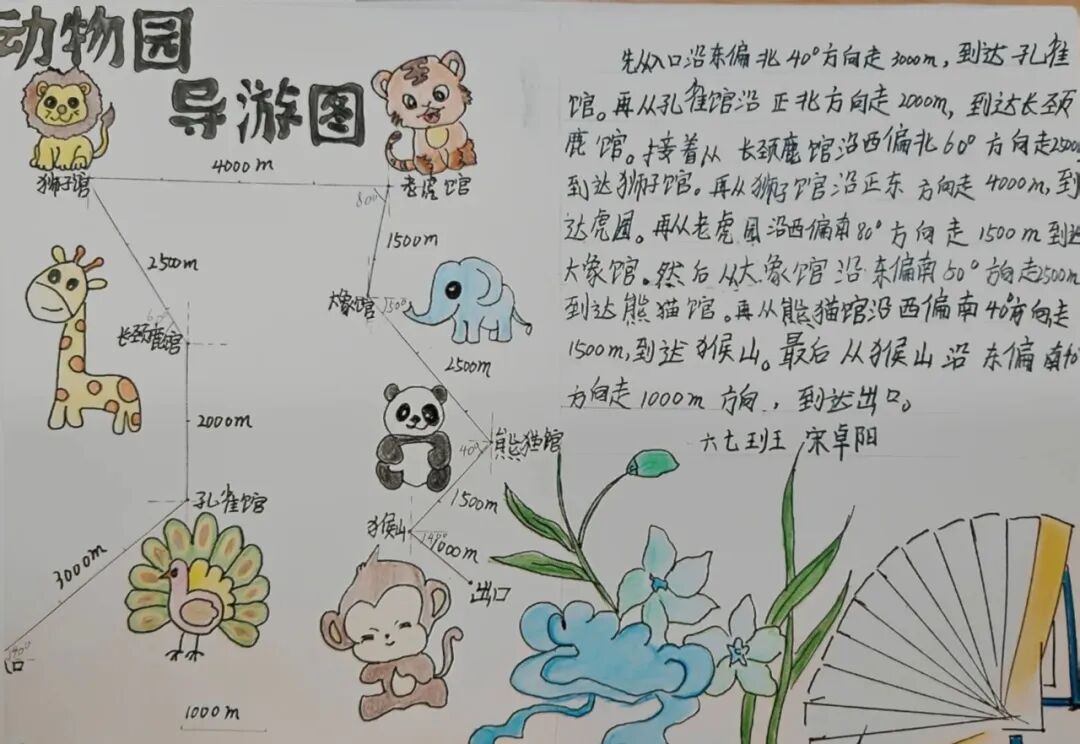 动物园
导游图
4000m
狮子馆
老虎馆
80°
1500m
2500m
大象馆
50°
60°
长颈鹿馆
2500m
2000m
40°
熊猫馆
孔雀馆
1500m
猴山
40°
1000m
3000m
出口
40°
口
1000m
先从入口沿东偏北40°方向走3000m,到达孔雀
馆。再从孔雀馆沿正北方向走2000m,到达长颈
鹿馆。接着从长颈鹿馆沿西偏北60°方向走2500
到达狮子馆。再从狮子馆沿正东方向走4000m,到
达虎园。再从老虎园沿西偏南80°方向走1500m到达
大象馆。然后从大象馆沿东偏南50°方向走2500m
到达熊猫馆。再从熊猫馆沿西偏南40°方向走
1500m,到达猴山。最后从猴山沿东偏南40
方向走1000m方向,到达出口。
六七班 宋卓阳